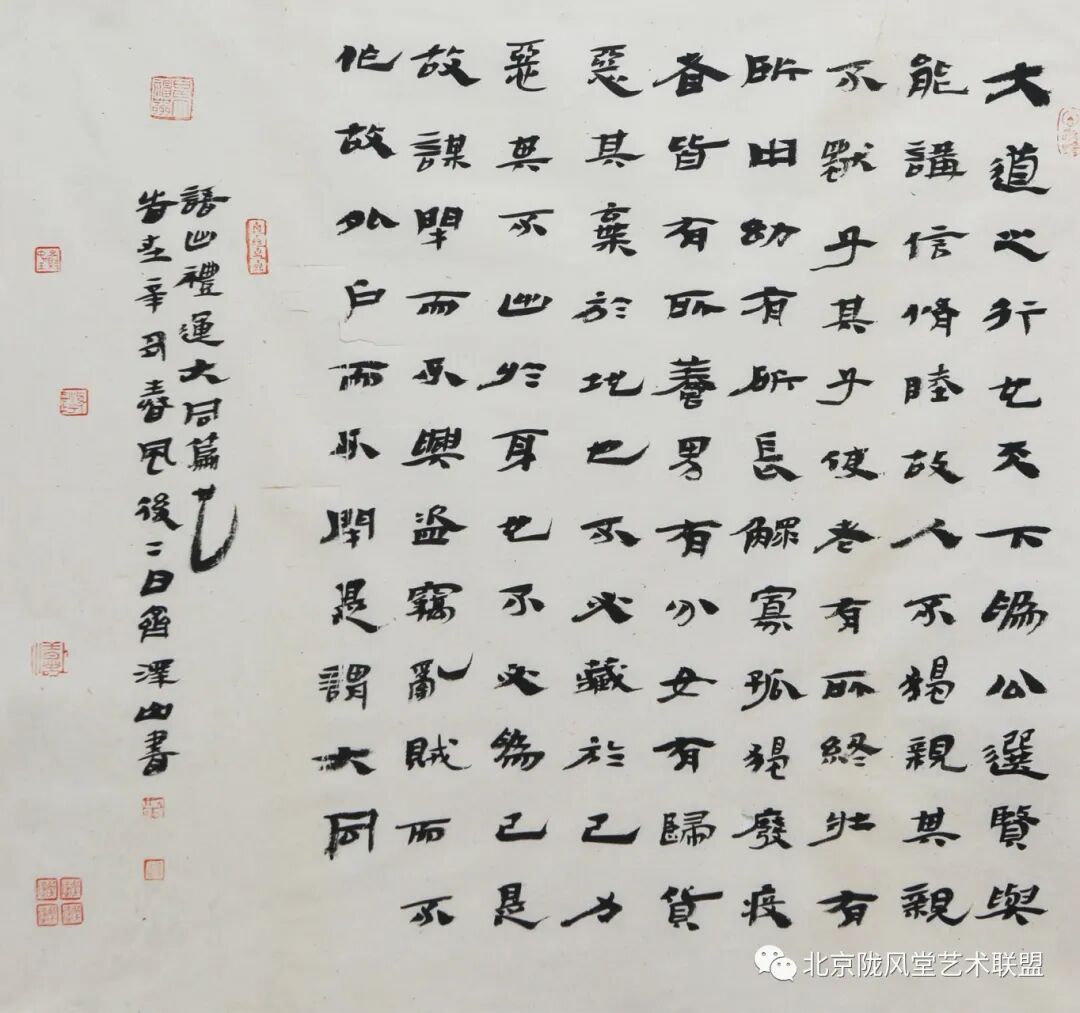 大道之行也天下為公選賢與
能講信脩睦故人不獨親其親
不獨子其子使老有所終壯有
所用幼有所長鰥寡孤獨廢疾
者皆有所養男有分女有歸貨
惡其棄於地也不必藏於己力
惡其不出於身也不必為己是
故謀閉而不興盜竊亂賊而不
作故外戶而不閉是謂大同
語出禮運大同篇也
在辛丑春風後二日齊澤山書
北京陇风堂艺术联盟